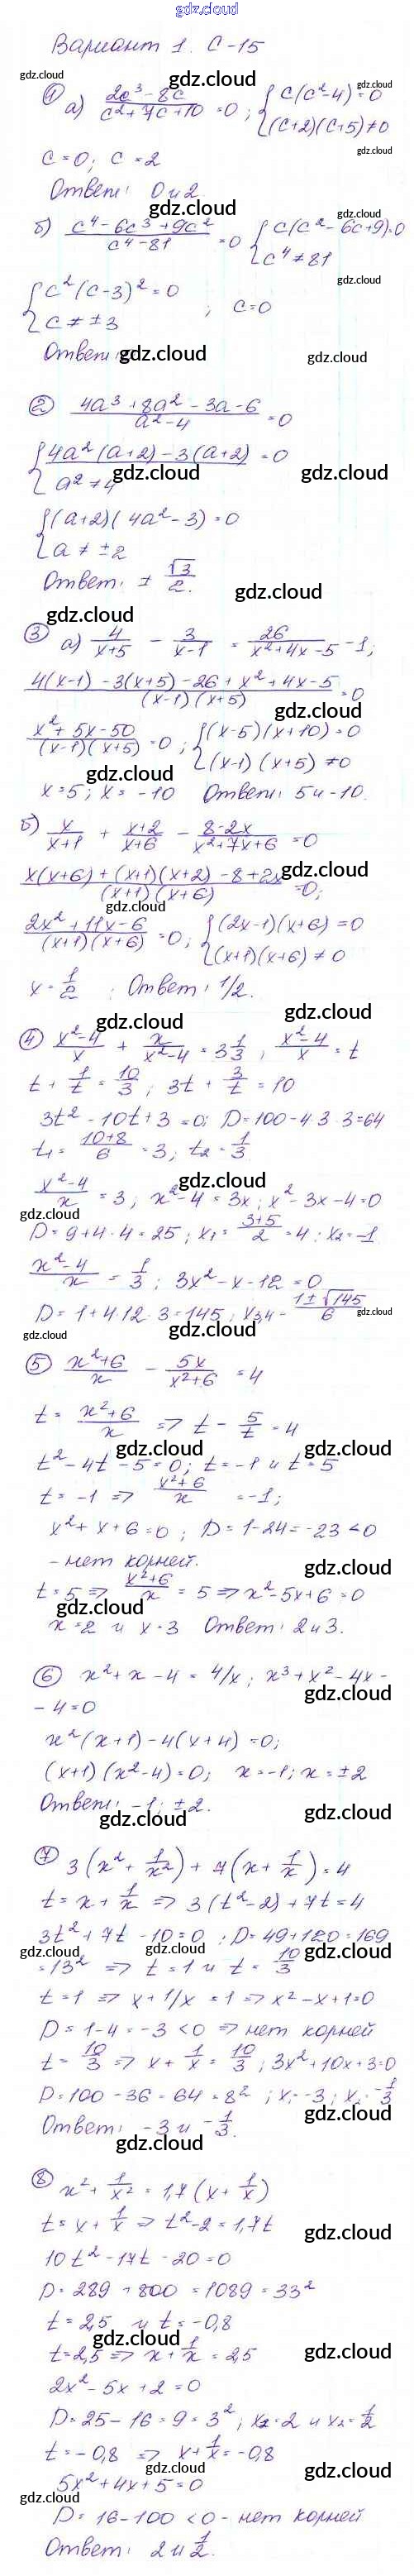 gdz.cloud
Вариант 1. С-15
gdz.cloud gdz.cloud gdz.cloud
① а) (2c³ - 8c)/(c² + 7c + 10) = 0; { c(c² - 4) = 0
{ (c+2)(c+5) ≠ 0
gdz.cloud
c = 0; c = 2
Ответ: 0 и 2.
gdz.cloud gdz.cloud
б) (c⁴ - 6c³ + 9c²)/(c⁴ - 81) = 0 { c(c² - 6c + 9) = 0
{ c⁴ ≠ 81
gdz.cloud
{ c²(c-3)² = 0
{ c ≠ ±3 ; c = 0
Ответ: gdz.cloud gdz.cloud
② (4a³ + 8a² - 3a - 6)/(a² - 4) = 0
{ 4a²(a+2) - 3(a+2) = 0
{ a² ≠ 4
gdz.cloud gdz.cloud
{ (a+2)(4a² - 3) = 0
{ a ≠ ±2
Ответ: ± √3/2.
gdz.cloud
gdz.cloud
③ а) 4/(x+5) - 3/(x-1) = 26/(x²+4x-5) - 1;
(4(x-1) - 3(x+5) - 26 + x² + 4x - 5)/((x-1)(x+5)) = 0
gdz.cloud
(x² + 5x - 50)/((x-1)(x+5)) = 0; { (x-5)(x+10) = 0
{ (x-1)(x+5) ≠ 0
gdz.cloud
x = 5; x = -10 Ответ: 5 и -10.
б) x/(x+1) + (x+2)/(x+6) - (8-2x)/(x²+7x+6) = 0
gdz.cloud
(x(x+6) + (x+1)(x+2) - 8 + 2x)/((x+1)(x+6)) = 0;
gdz.cloud
(2x² + 11x - 6)/((x+1)(x+6)) = 0; { (2x-1)(x+6) = 0
{ (x+1)(x+6) ≠ 0
x = 1/2 ; Ответ: 1/2.
gdz.cloud gdz.cloud
④ (x²-4)/x + x/(x²-4) = 3 1/3; (x²-4)/x = t
t + 1/t = 10/3; 3t + 3/t = 10
3t² - 10t + 3 = 0; D = 100 - 4·3·3 = 64
t₁ = (10+8)/6 = 3; t₂ = 1/3
gdz.cloud
(x²-4)/x = 3; x² - 4 = 3x; x² - 3x - 4 = 0
gdz.cloud
D = 9 + 4·4 = 25; x₁ = (3+5)/2 = 4; x₂ = -1
(x²-4)/x = 1/3; 3x² - x - 12 = 0
D = 1 + 4·12·3 = 145; x₃,₄ = (1 ± √145)/6
gdz.cloud gdz.cloud gdz.cloud
⑤ (x²+6)/x - 5x/(x²+6) = 4
t = (x²+6)/x => t - 5/t = 4
gdz.cloud gdz.cloud
t² - 4t - 5 = 0; t = -1 и t = 5
t = -1 => (x²+6)/x = -1;
x² + x + 6 = 0; D = 1 - 24 = -23 < 0
- нет корней.
gdz.cloud
t = 5 => (x²+6)/x = 5 => x² - 5x + 6 = 0
gdz.cloud
x = 2 и x = 3 Ответ: 2 и 3.
⑥ x² + x - 4 = 4/x; x³ + x² - 4x -
gdz.cloud
- 4 = 0
x²(x+1) - 4(x+4) = 0;
(x+1)(x²-4) = 0; x = -1; x = ±2
Ответ: -1; ±2.
gdz.cloud gdz.cloud
⑦ 3(x² + 1/x²) + 7(x + 1/x) = 4
t = x + 1/x => 3(t²-2) + 7t = 4
3t² + 7t - 10 = 0; D = 49 + 120 = 169
gdz.cloud gdz.cloud gdz.cloud
= 13² => t = 1 и t = 10/3
t = 1 => x + 1/x = 1 => x² - x + 1 = 0
D = 1 - 4 = -3 < 0 => нет корней
t = 10/3 => x + 1/x = 10/3; 3x² + 10x + 3 = 0
D = 100 - 36 = 64 = 8²; x₁ = -3; x₂ = -1/3
gdz.cloud
Ответ: -3 и -1/3.
gdz.cloud
⑧ x² + 1/x² = 1,7(x + 1/x)
t = x + 1/x => t² - 2 = 1,7t
gdz.cloud
10t² - 17t - 20 = 0
D = 289 + 800 = 1089 = 33²
t = 2,5 и t = -0,8
gdz.cloud gdz.cloud
t = 2,5 => x + 1/x = 2,5
2x² - 5x + 2 = 0
D = 25 - 16 = 9 = 3²; x₂ = 2 и x₂ = 1/2
t = -0,8 => x + 1/x = -0,8
gdz.cloud gdz.cloud
5x² + 4x + 5 = 0
gdz.cloud
D = 16 - 100 < 0 - нет корней
gdz.cloud
Ответ: 2 и 1/2.